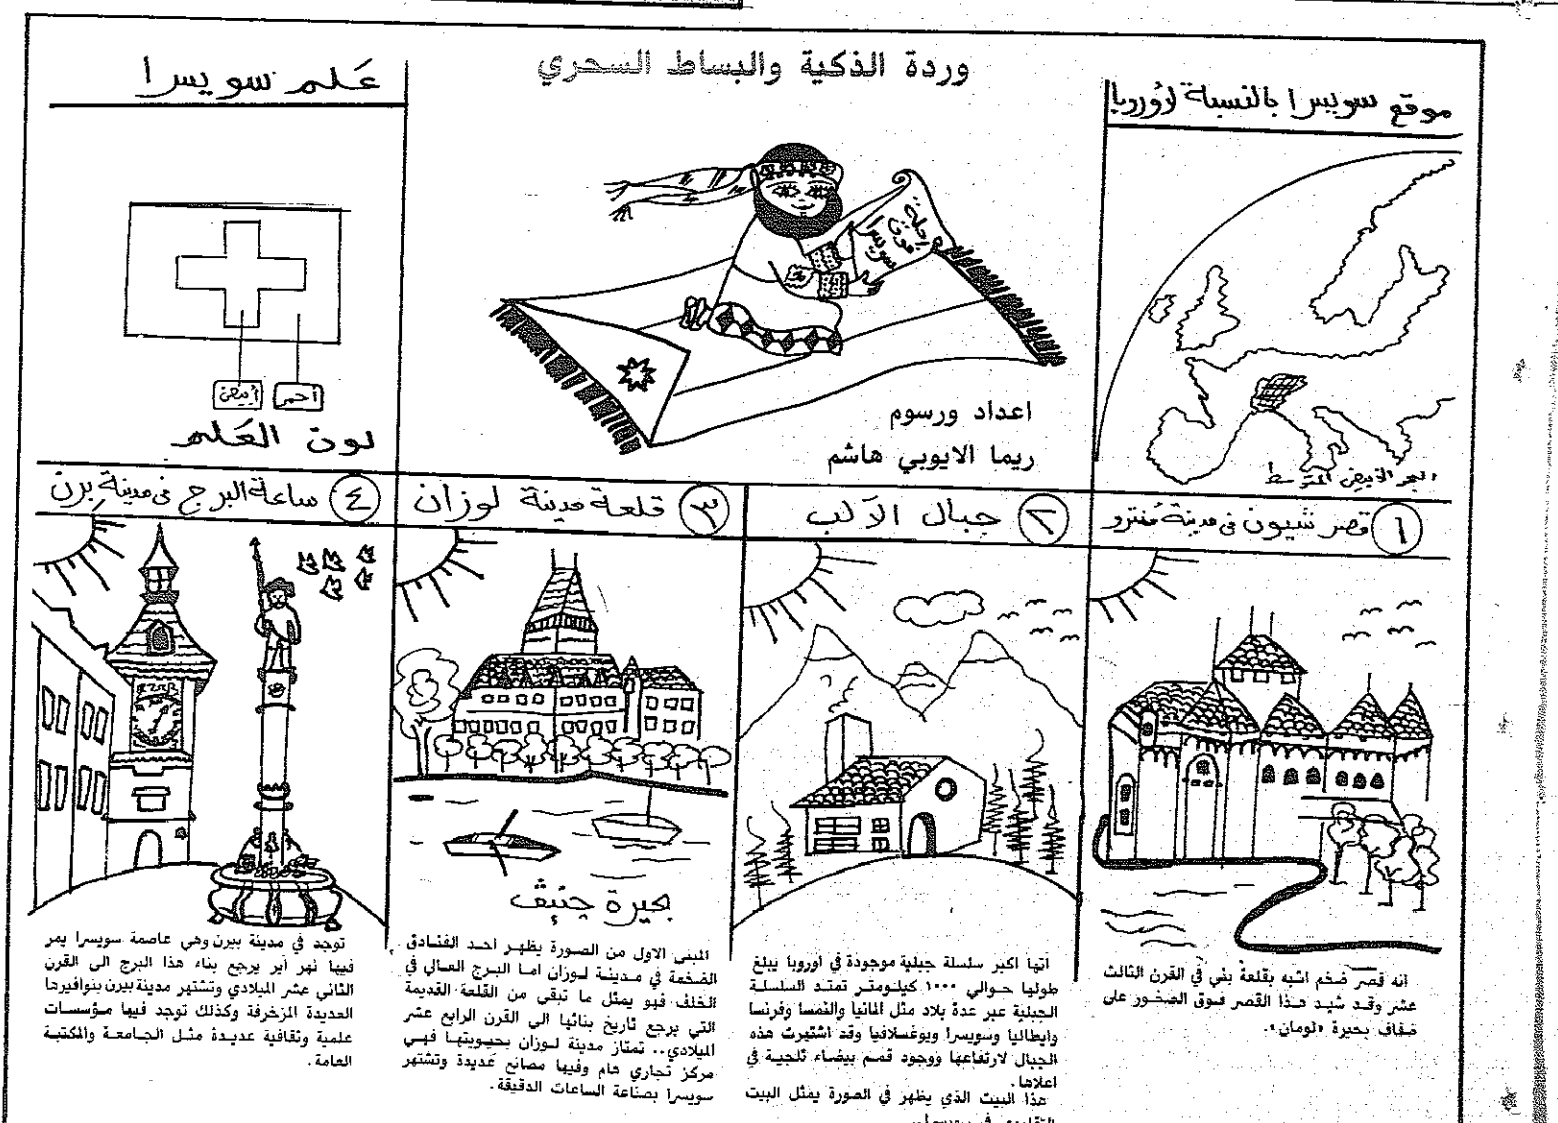 وردة الذكية والبساط السحري
موقع سويسرا بالنسبة لأوروبا
البحر الأبيض المتوسط
رحلة
فوق
سويسرا
اعداد ورسوم
ريما الايوبي هاشم
عَلم سويسرا
أحمر
أبيض
لون العَلم
١ قصر شيون في مدينة مُنترو
انه قصر ضخم اشبه بقلعة بني في القرن الثالث
عشر وقد شيد هذا القصر فوق الصخور على
ضفاف بحيرة «لومان».
٢ جبال الآلب
انها اكبر سلسلة جبلية موجودة في أوروبا يبلغ
طولها حوالي ١٠٠٠ كيلومتر تمتد السلسلة
الجبلية عبر عدة بلاد مثل المانيا والنمسا وفرنسا
وايطاليا وسويسرا ويوغسلافيا وقد اشتهرت هذه
الجبال لارتفاعها ووجود قمم بيضاء ثلجية في
اعلاها.
هذا البيت الذي يظهر في الصورة يمثل البيت
٣ قلعة مدينة لوزان
بحيرة جنيڤ
المبنى الاول من الصورة يظهر احد الفنادق
الضخمة في مدينة لوزان اما البرج العالي في
الخلف فهو يمثل ما تبقى من القلعة القديمة
التي يرجع تاريخ بنائها الى القرن الرابع عشر
الميلادي.. تمتاز مدينة لوزان بحيويتها فهي
مركز تجاري هام وفيها مصانع عديدة وتشتهر
سويسرا بصناعة الساعات الدقيقة.
٤ ساعة البرج في مدينة بِرن
توجد في مدينة بيرن وهي عاصمة سويسرا يمر
فيها نهر آير يرجع بناء هذا البرج الى القرن
الثاني عشر الميلادي وتشتهر مدينة بيرن بنوافيرها
العديدة المزخرفة وكذلك توجد فيها مؤسسات
علمية وثقافية عديدة مثل الجامعة والمكتبة
العامة.